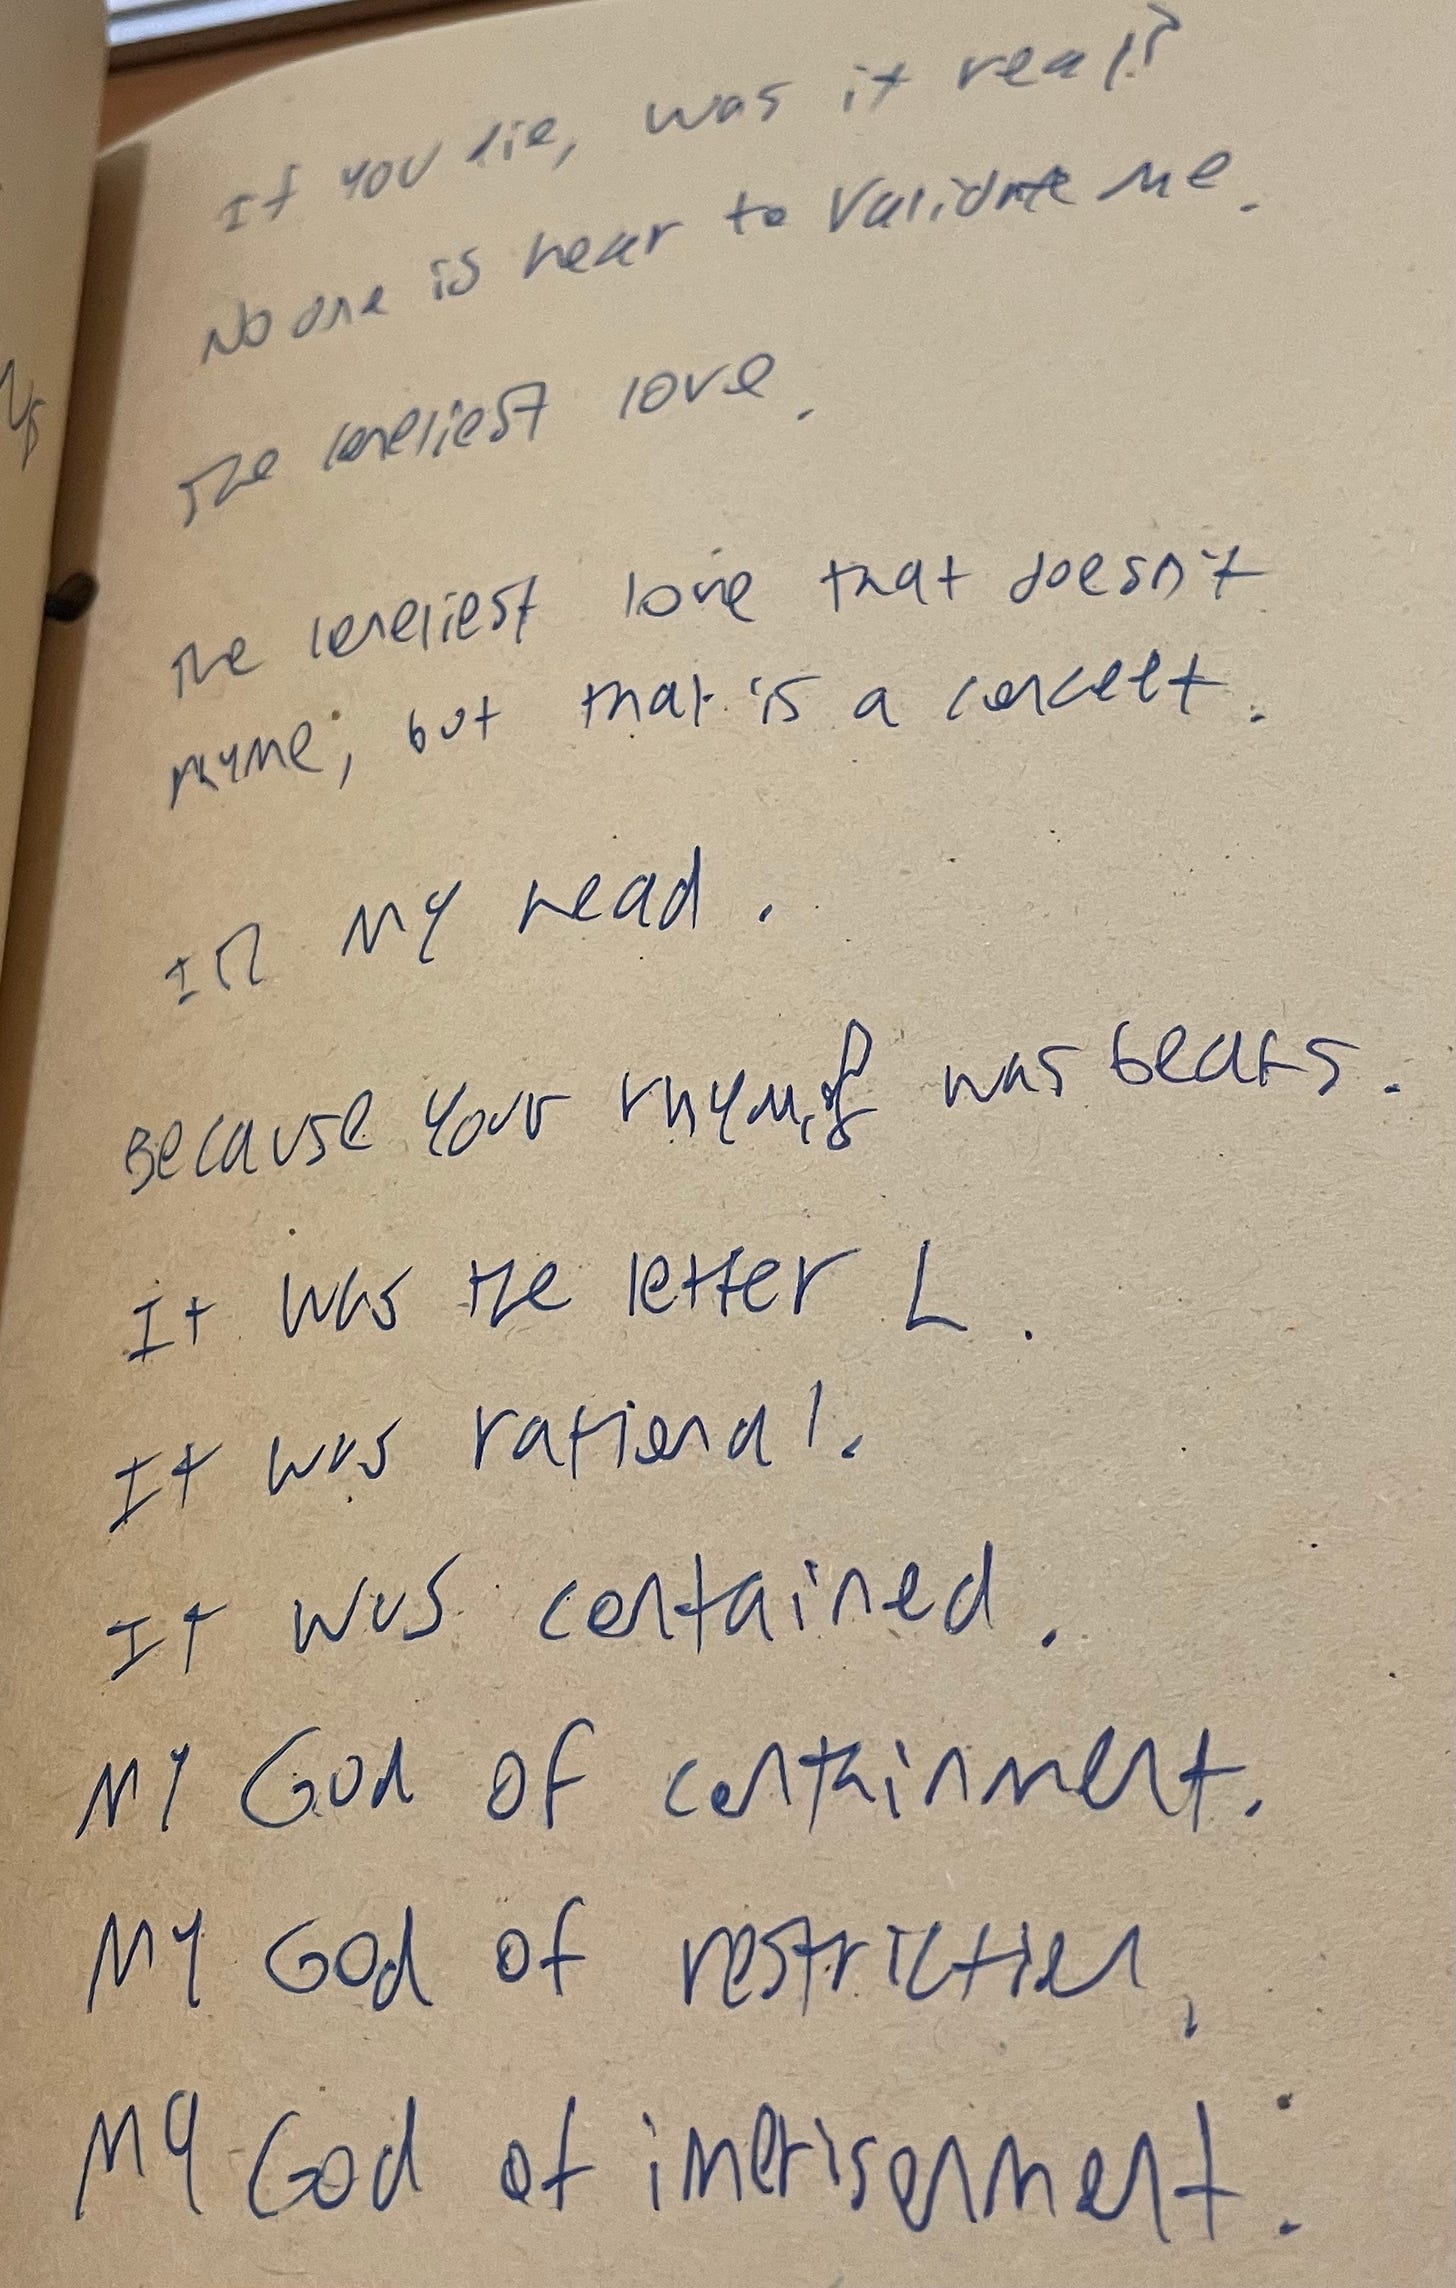 If you die, was it real?
No one is near to validate me.
The loneliest love.
The loneliest love that doesn't
rhyme, but that is a concept.
In my head.
Because your rhyming was beats.
It was the letter L.
It was rational.
It was contained.
My God of containment.
My God of restriction,
My God of imprisonment.